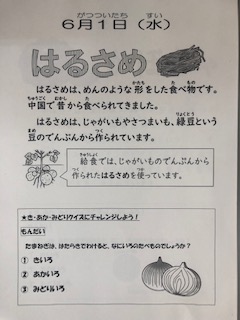 がつついたち すい
6月1日（水）
はるさめ
はるさめは、めんのような形をした食べ物です。
中国で昔から食べられてきました。
はるさめは、じゃがいもやさつまいも、緑豆という
豆のでんぷんから作られています。
給食では、じゃがいものでんぷんから
作られたはるさめを使っています。
★き・あか・みどりクイズにチャレンジしよう！
もんだい
たまねぎは、はたらきでわけると、なにいろのたべものでしょうか？
① きいろ
② あかいろ
③ みどりいろ